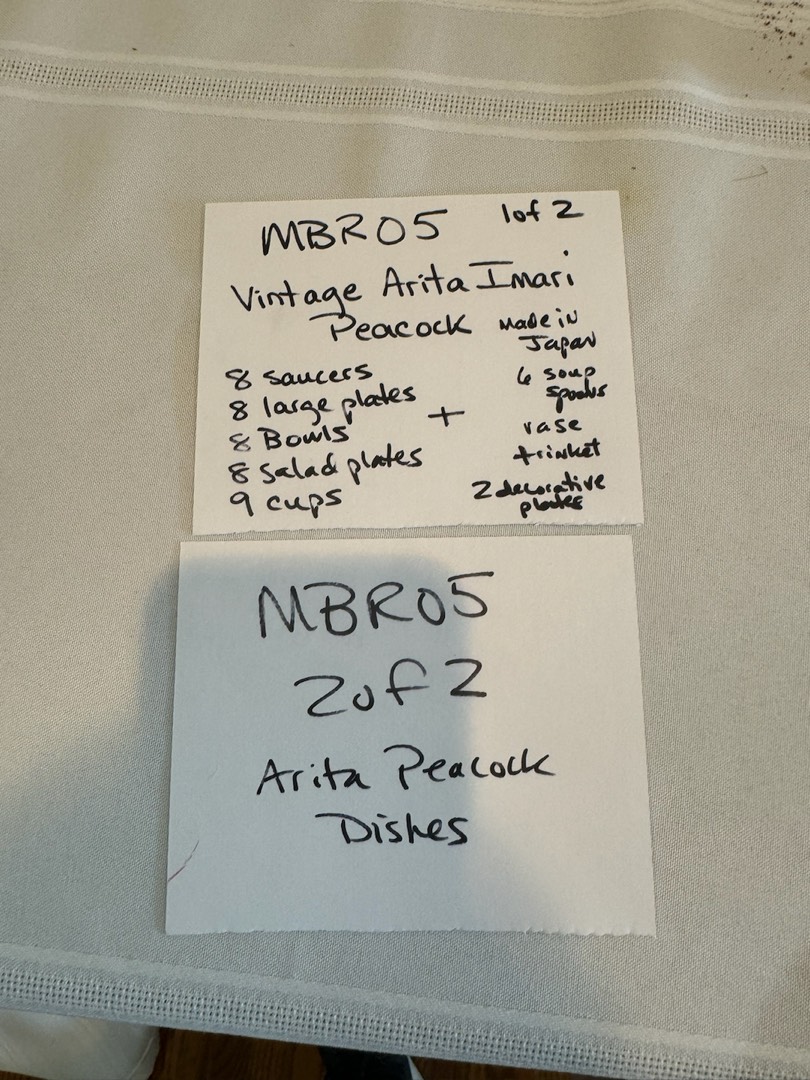 MBR05 1of 2
Vintage Arita Imari
Peacock Made in
Japan
8 saucers
8 large plates
8 Bowls
8 Salad plates
9 cups
+
6 soup
spoons
vase
trinket
2 decorative
plates
MBR05
2of 2
Arita Peacock
Dishes